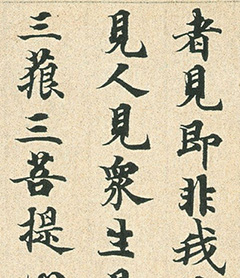 者見即非我
見人見衆生
三藐三菩提